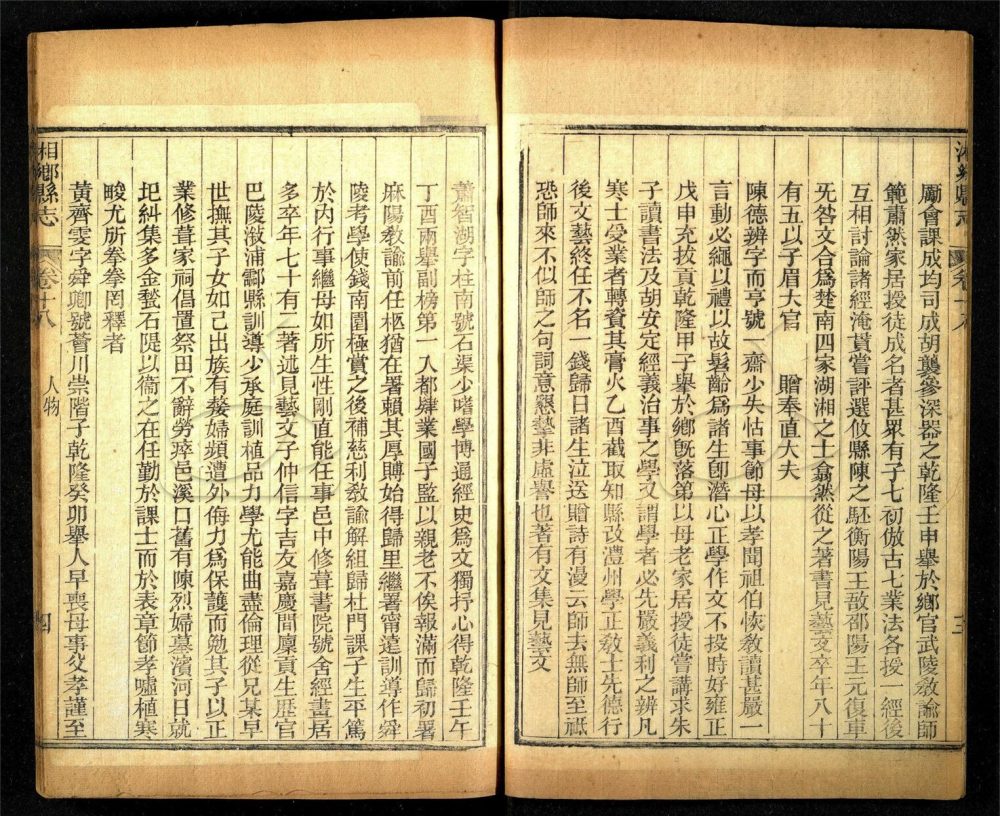 湘鄉縣志 卷十八 三
屬會課成均司成胡襲參深器之乾隆壬申舉於鄉官武陵教諭師
範肅然家居授徒成名者甚眾有子七初倣古七業法各授一經後
互相討論諸經淹貫嘗評選攸縣陳之駓衡陽王敔邵陽王元復車
旡咎文合為楚南四家湖湘之士翕然從之著書見藝文卒年八十
有五以子眉大官 贈奉直大夫
陳德辨字而亨號一齋少失怙事節母以孝聞祖伯恢教讀甚嚴一
言動必繩以禮以故髫齡為諸生卽潛心正學作文不投時好雍正
戊申充拔貢乾隆甲子舉於鄉旣落第以母老家居授徒嘗講求朱
子讀書法及胡安定經義治事之學又謂學者必先嚴義利之辨凡
寒士受業者轉資其膏火乙酉截取知縣改澧州學正敎士先德行
後文藝終任不名一錢歸日諸生泣送贈詩有漫云師去無師至祗
恐師來不似師之句詞意懇摯非虛譽也著有文集見藝文
蕭智湖字柱南號石渠少嗜學博通經史為文獨抒心得乾隆壬午
丁酉兩舉副榜第一入都肄業國子監以親老不俟報滿而歸初署
麻陽敎諭前任柩猶在署賴其厚賻始得歸里繼署甯遠訓導作舜
陵考學使錢南園極賞之後補慈利敎諭解組歸杜門課子生平篤
於內行事繼母如所生性剛直能任事邑中修葺書院號舍經畫居
多卒年七十有二著述見藝文子仲信字吉友嘉慶間廩貢生歷官
巴陵漵浦酃縣訓導少承庭訓植品力學尤能曲盡倫理從兄某早
世撫其子女如己出族有嫠婦頻遭外侮力為保護而勉其子以正
業修葺家祠倡置祭田不辭勞瘁邑溪口舊有陳烈婦墓濱河日就
圮糾集多金甃石隄以衞之在任勤於課士而於表章節孝噓植寒
畯尤所拳拳罔釋者
黃齊雯字舜卿號薈川崇階子乾隆癸卯舉人早喪母事父孝謹至
湘鄉縣志 卷十八 人物 四